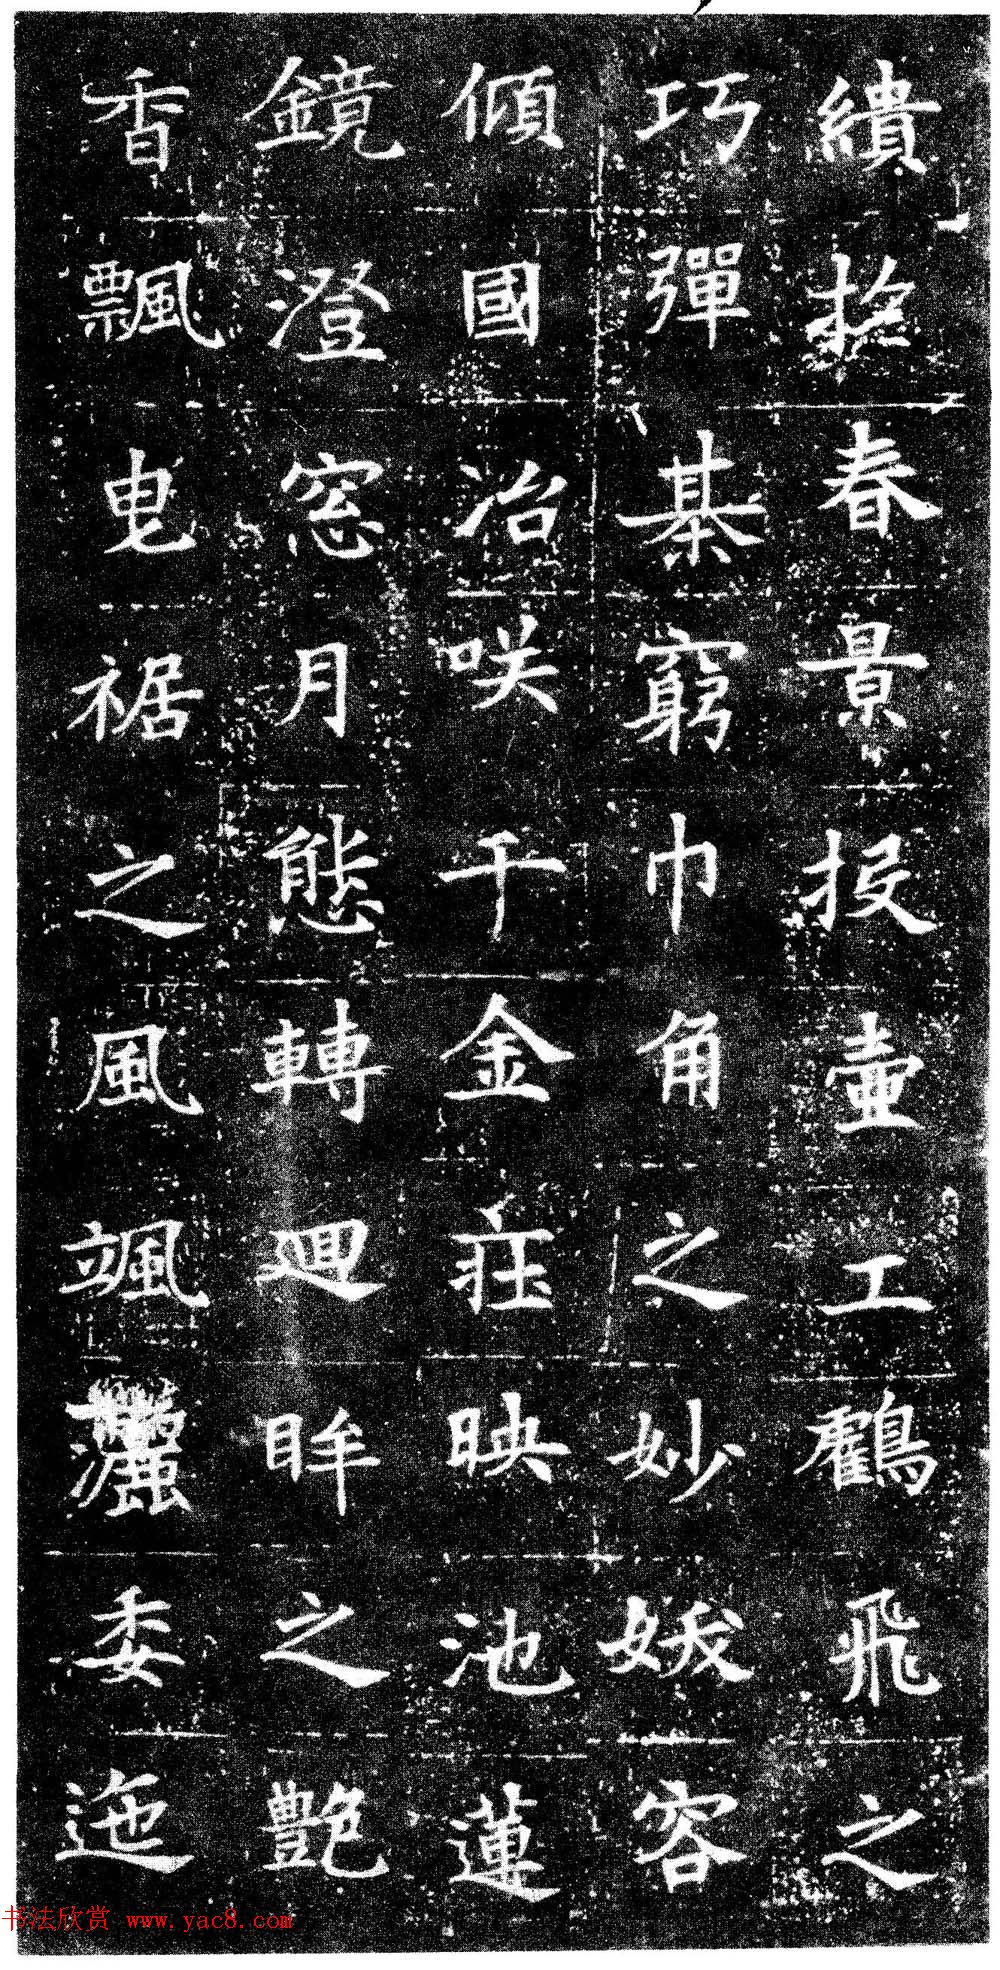 繢捴春景投壷工鸛飛之
巧彈棊窮巾角之妙妖容
傾國冶咲千金荘映池蓮
鏡澄窓月態轉廻眸之艶
香飄曳裾之風颯灑委迤
书法欣赏 www.yac8.com